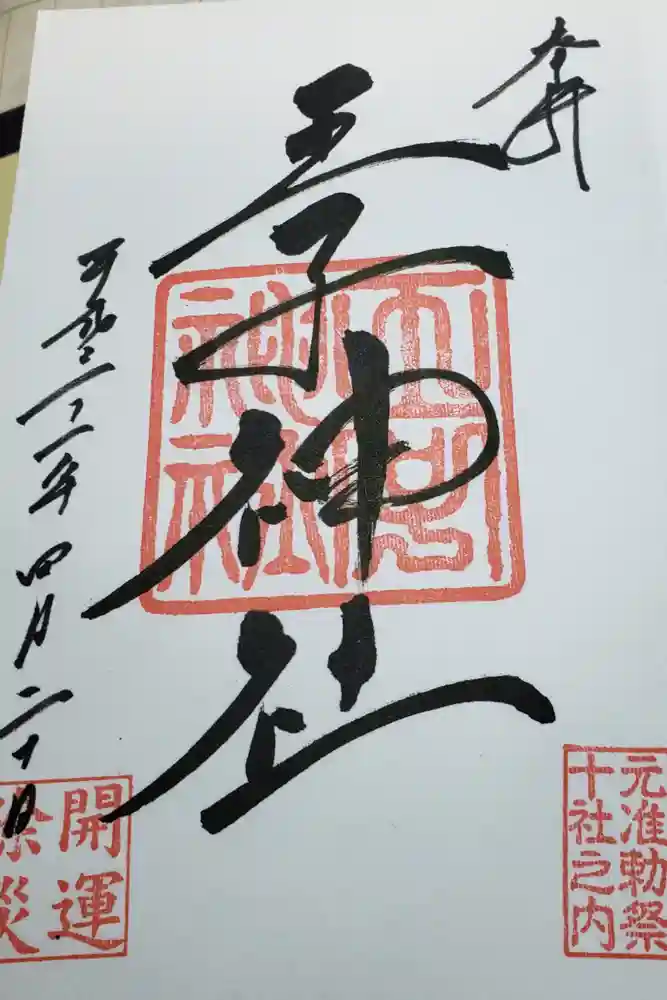 奉拝
王子神社
王子
神社
平成三十一年四月二十日
元准勅祭
十社之内
開運
除災